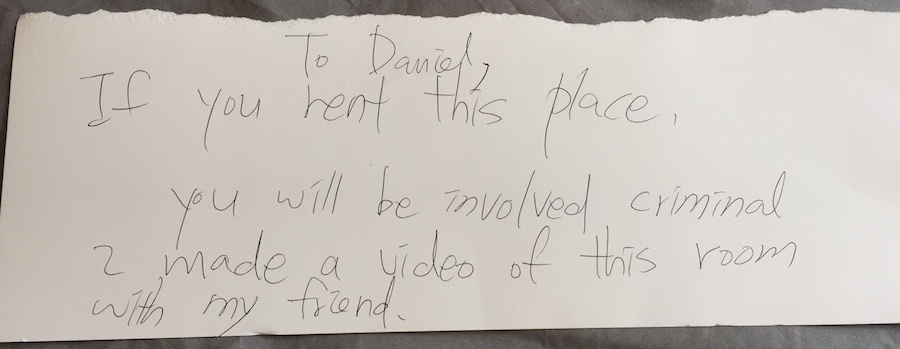 To Daniel,
If you rent this place.
you will be involved criminal
I made a video of this room
with my friend.